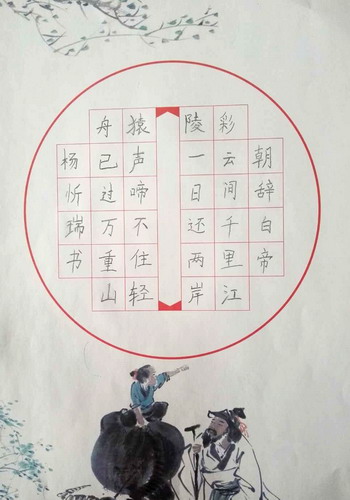 朝辞白帝
彩云间千里江
陵一日还两岸
猿声啼不住轻
舟已过万重山
杨忻瑞书